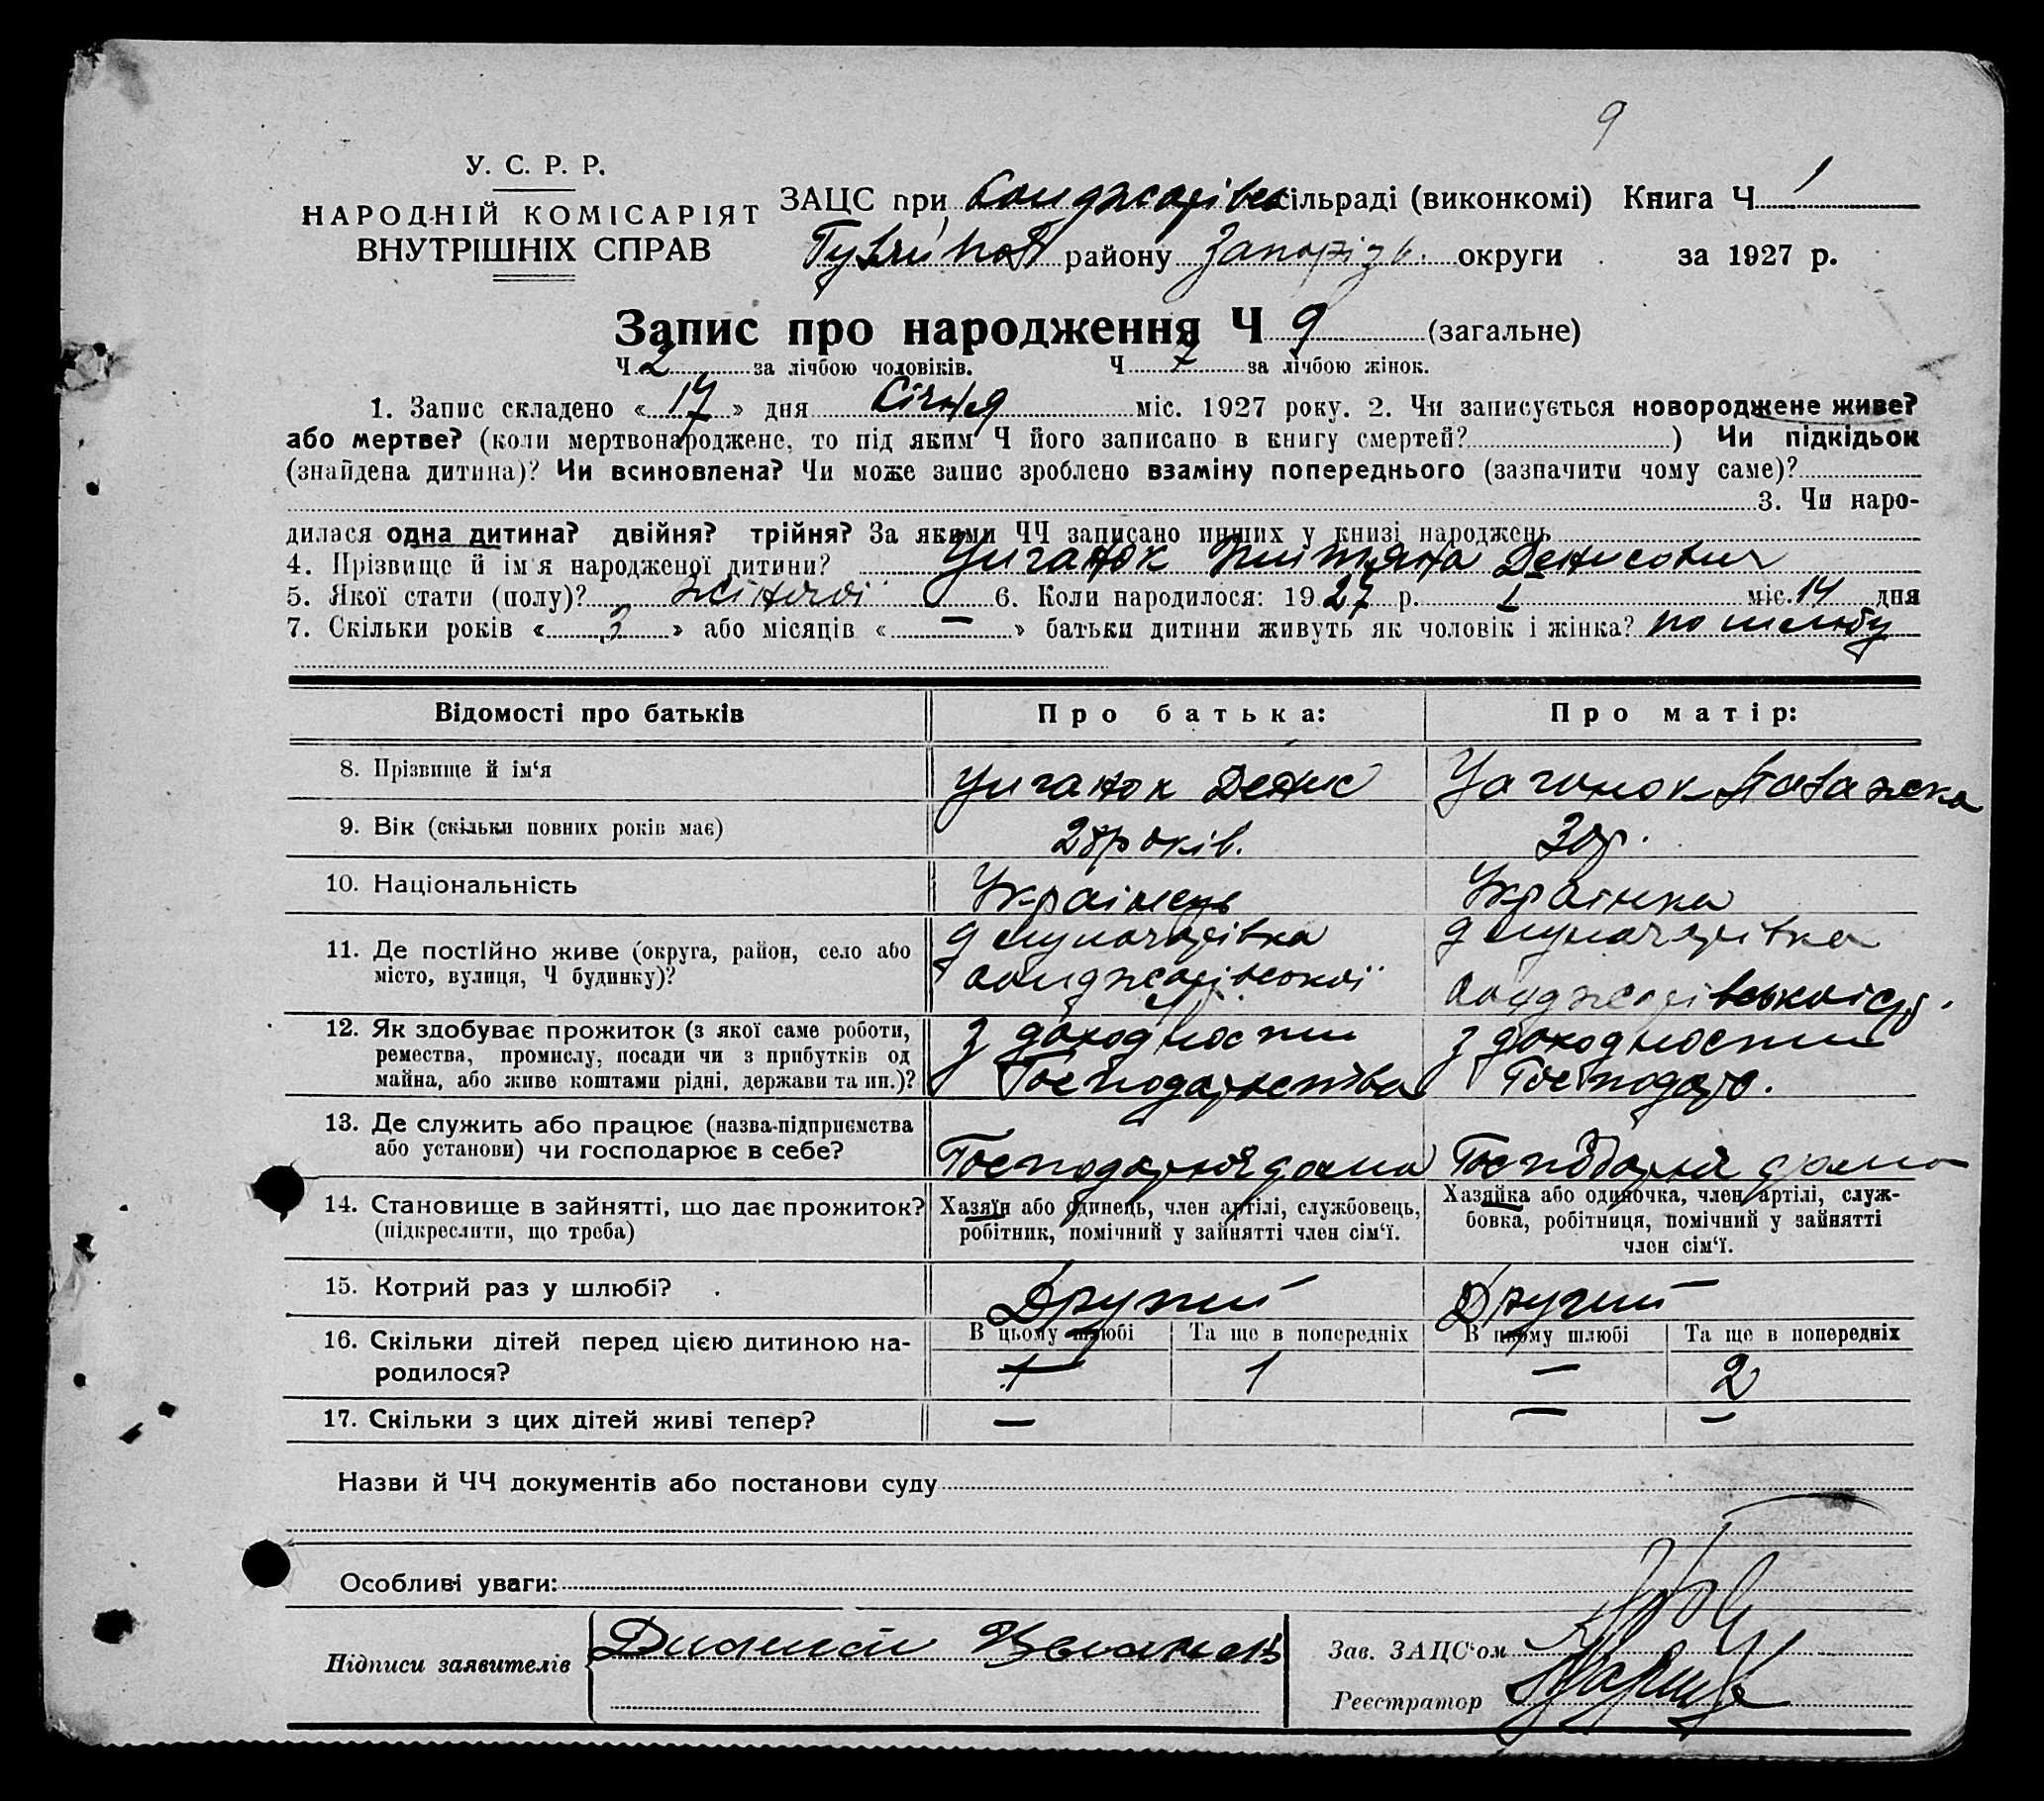 9
У. С. Р. Р.
НАРОДНІЙ КОМІСАРІЯТ
ВНУТРІШНІХ СПРАВ
ЗАЦС при Санджарівск сільраді (виконкомі) Книга Ч 1
району Запорізь. округи за 1927 р.
Запис про народження Ч 9 (загальне)
Ч 2 за лічбою чоловіків. Ч 7 за лічбою жінок.
1. Запис складено « 17 » дня Січня міс. 1927 року. 2. Чи записується новороджене живе?
або мертве? (коли мертвонароджене, то під яким Ч його записано в книгу смертей? ) Чи підкідьок
(знайдена дитина)? Чи всиновлена? Чи може запис зроблено взаміну попереднього (зазначити чому саме)?
3. Чи наро-
дилася одна дитина? двійня? трійня? За якими ЧЧ записано инших у книзі народжень
4. Прізвище й ім'я народженої дитини? Циганок Титяна Денисовна
5. Якої стати (полу)? жіночої 6. Коли народилося: 1927 р. 1 міс. 14 дня
7. Скільки років « 3 » або місяців « — » батьки дитини живуть як чоловік і жінка? по шлюбу
Відомості про батьків
Про батька:
Про матір:
8. Прізвище й ім'я
Циганок Денис
9. Вік (скільки повних років має)
28 років.
30 р.
10. Національність
Українець
Українка
11. Де постійно живе (округа, район, село або
місто, вулиця, Ч будинку)?
Санджарівської
Санджарівської с/р.
12. Як здобуває прожиток (з якої саме роботи,
ремества, промислу, посади чи з прибутків од
майна, або живе коштами рідні, держави та ин.)?
З доходности
Господарюства
З доходности
Господар.
13. Де служить або працює (назва-підприємства
або установи) чи господарює в себе?
Господарює дома
Господарює дома
14. Становище в зайнятті, що дає прожиток?
(підкреслити, що треба)
Хазяїн або одинець, член артілі, службовець,
робітник, помічний у зайнятті член сім'ї.
Хазяйка або одиночка, член артілі, служ-
бовка, робітниця, помічний у зайнятті
член сім'ї.
15. Котрий раз у шлюбі?
Другий
Другий
16. Скільки дітей перед цією дитиною на-
родилося?
В цьому шлюбі Та ще в попередніх В цьому шлюбі Та ще в попередніх
1 — 2
17. Скільки з цих дітей живі тепер?
— — —
Назви й ЧЧ документів або постанови суду
Особливі уваги:
Підписи заявителів
Зав. ЗАЦС'ом
Реєстратор